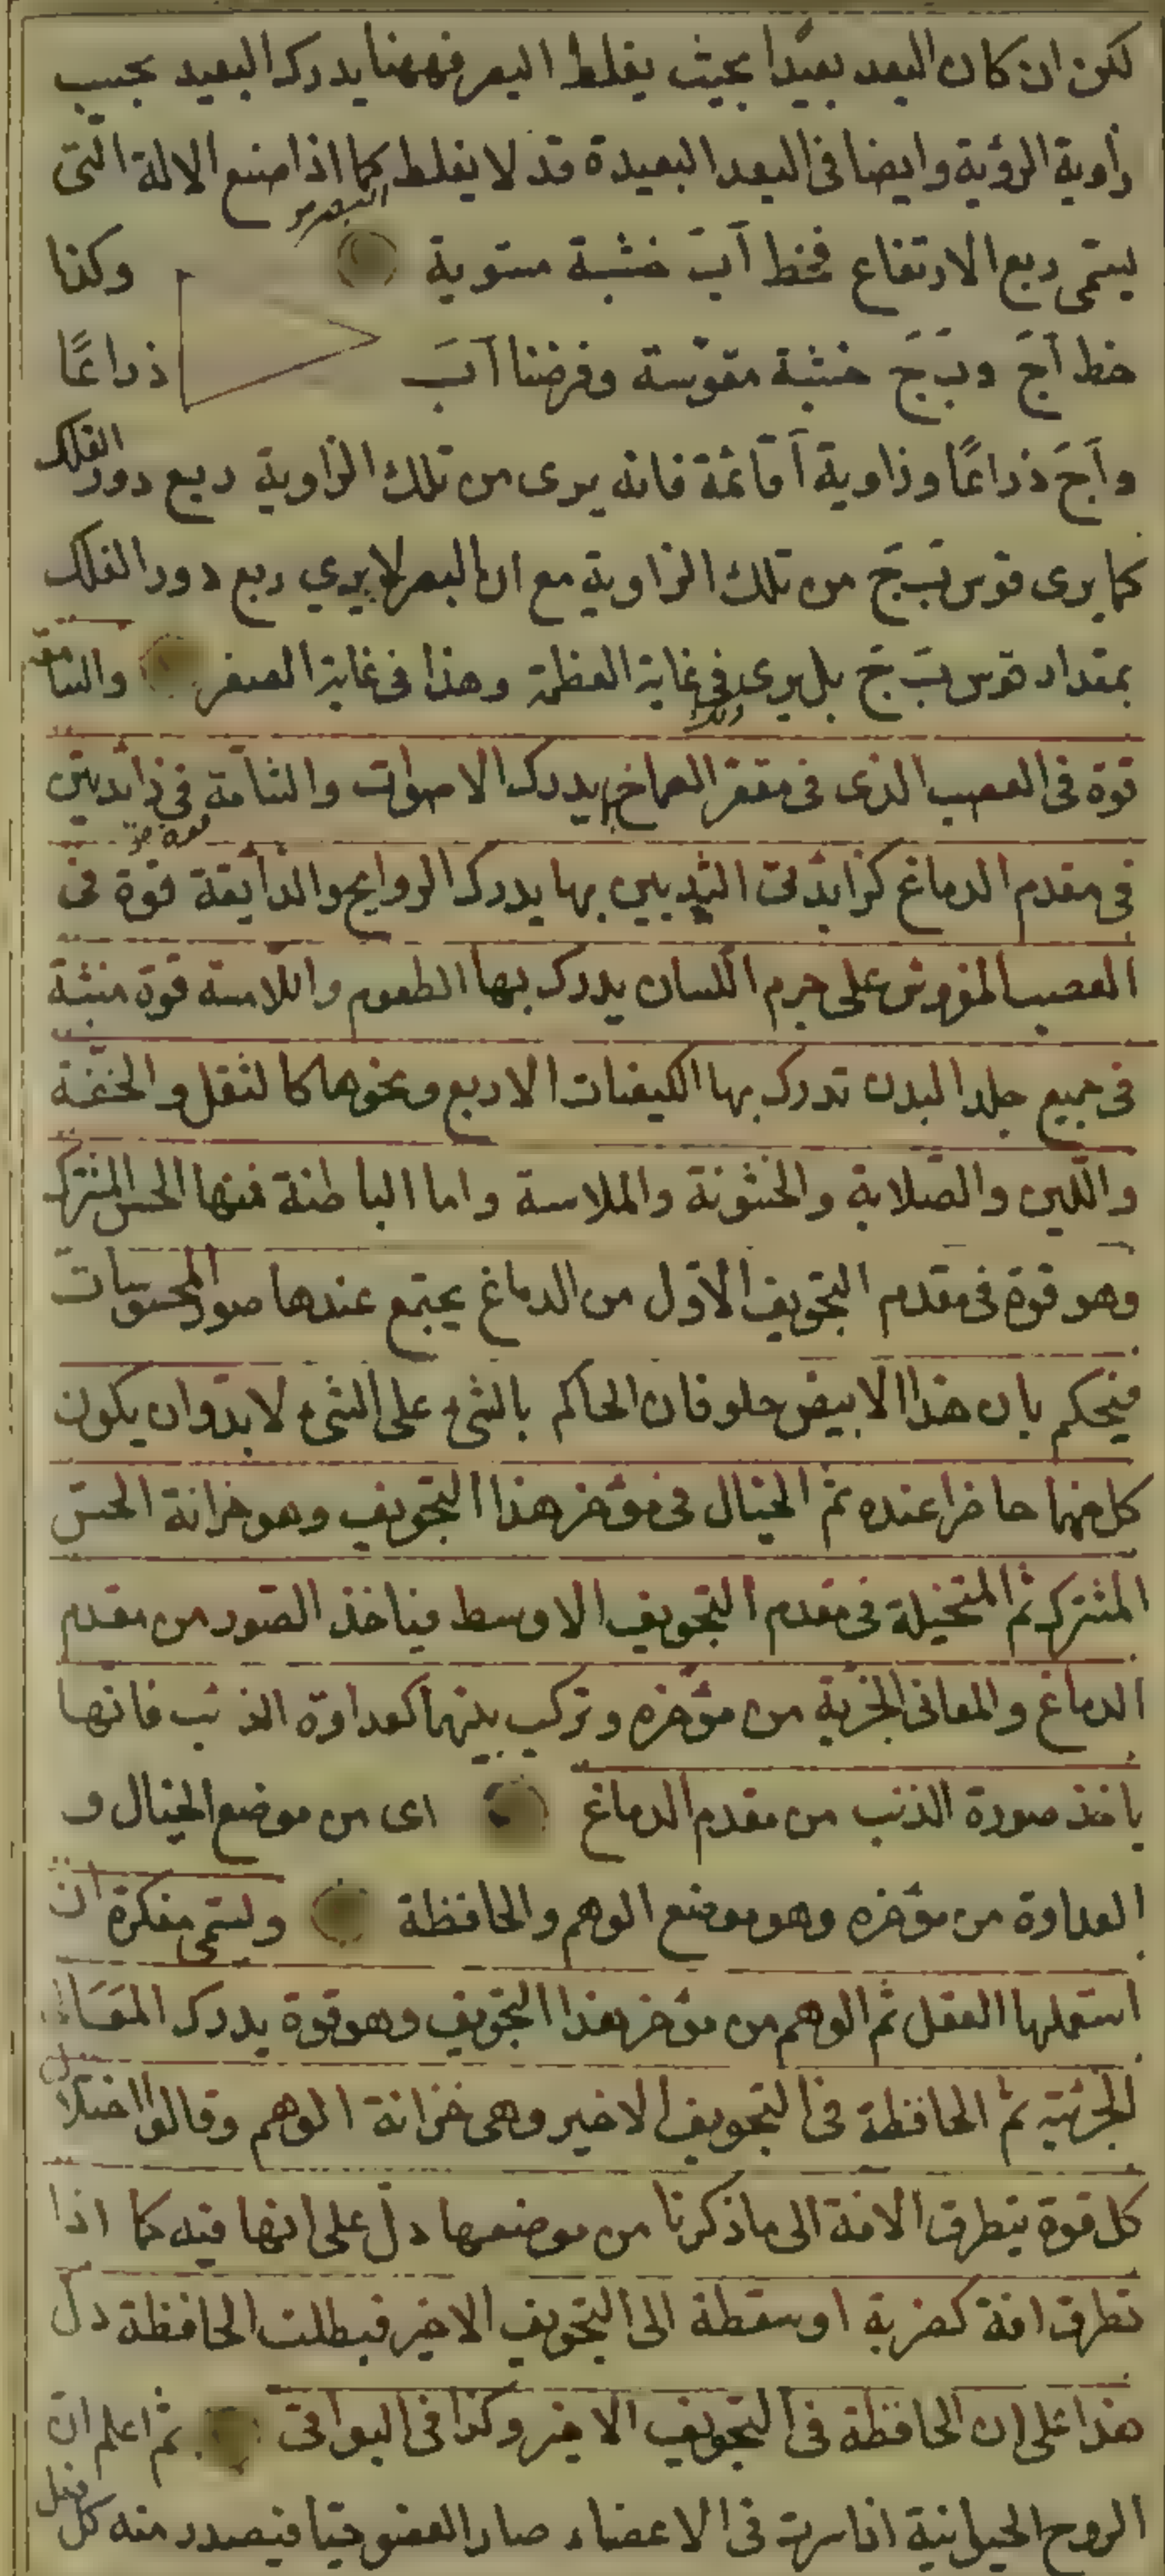 لكن ان كان البعد بعيدا بحيث يغلط البصر فههنا يدرك البعيد بحسب
زاوية الرؤية وايضا فى البعد البعيدة قد لا يغلط كما اذا صنع الالة التى
البصر
يسمّى ربع الارتفاع فخط آب خشبة مستوية وكذا
خط آج وب ج خشبة مقوّسة وفرضنا آب ذراعًا
وآج ذراعًا وزاوية آ قائمة فانه يرى من تلك الزاوية ربع دور الفلك
كما يرى قوس ب ج من تلك الزاوية مع ان البصر لا يرى ربع دور الفلك
بمقدار قوس ب ج بل يرى ذلك فى غاية العظمة وهذا فى غاية الصغر والسامعة
قوة فى العصب الذى فى مقعر الصماخ بها يدرك الاصوات والشامة فى زائدتين
قوة
فى مقدم الدماغ كزايدتى الثديين بها يدرك الروايح والذايقة قوة فى
العصب المفروش على جرم اللسان يدرك بها الطعوم واللامسة قوة منبثة
فى جميع جلد البدن تدرك بها الكيفيات الاربع ونحوها كالثقل والخفّة
واللّين والصّلابة والخشونة والملاسة واما الباطنة فمنها الحس المشترك
وهو قوة فى مقدم التجويف الاوّل من الدماغ يجتمع عندها صور المحسوسات
فيحكم بان هذا الابيض حلو فان الحاكم بالشئ على الشئ لا بدّ وان يكون
كل منهما حاضرا عنده ثم الخيال فى مؤخر هذا التجويف وهو خزانة الحسّ
المشترك ثم المتخيلة فى مقدم التجويف الاوسط فياخذ الصور من مقدم
الدماغ والمعانى الجزية من مؤخره وتركب بينهما كعداوة الذئب فانها
ياخذ صورة الذئب من مقدم الدماغ اى من موضع الخيال و
العداوة من مؤخره وهو موضع الوهم والحافظة وتسمّى مفكرة ان
استعملها العقل ثم الوهم من مؤخر هذا التجويف وهو قوة يدرك المعَانى
الجزئية ثم الحافظة فى التجويف الاخير وهى خزانة الوهم وقالوا اختلال
كل قوة بتطرق الافة الى ما ذكرنا من موضعها دلّ على انها فيه كما اذا
تطرق افة كضربة او سقطة الى التجويف الاخير فبطلت الحافظة دلّ
هذا على ان الحافظة فى التجويف الاخير وكذا فى البواقى ثم اعلم ان
الروح الحيوانية اذا سرت فى الاعضاء صار العضو حيّا فيصدر منه كل فعل